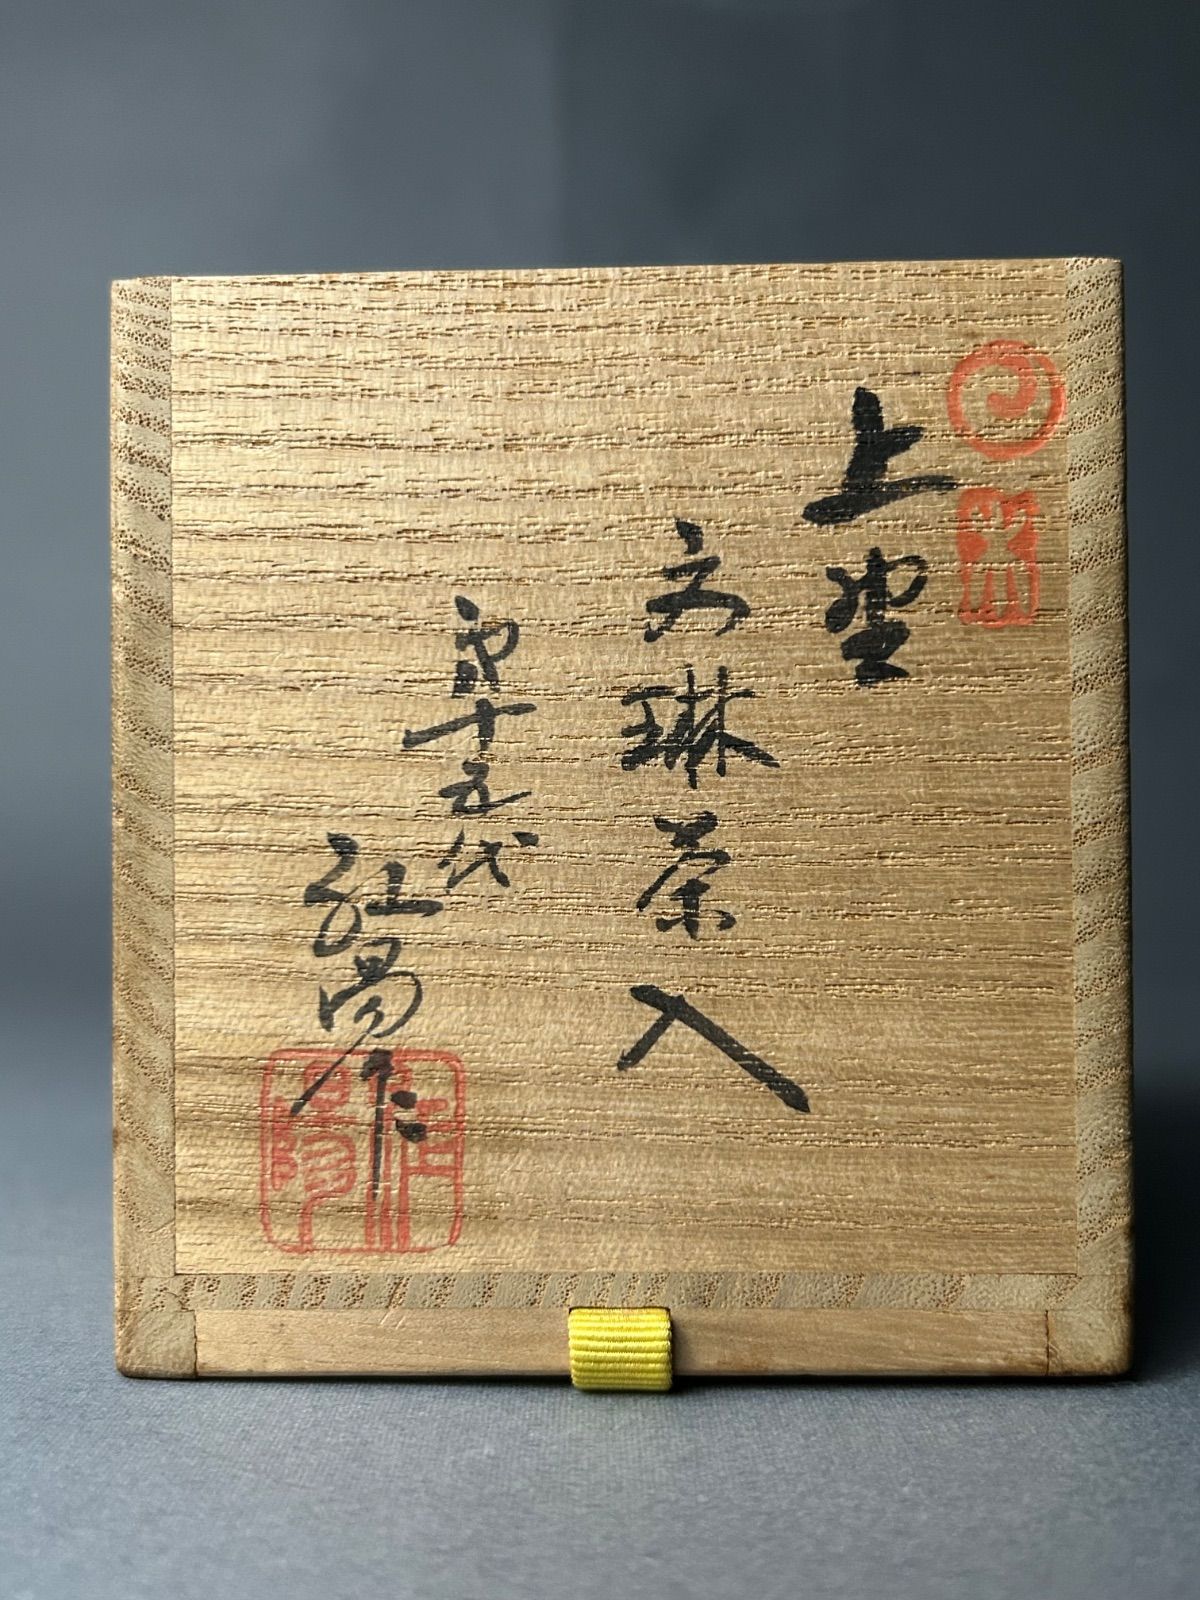 上埜
文琳茶入
第十五代
紅陽作